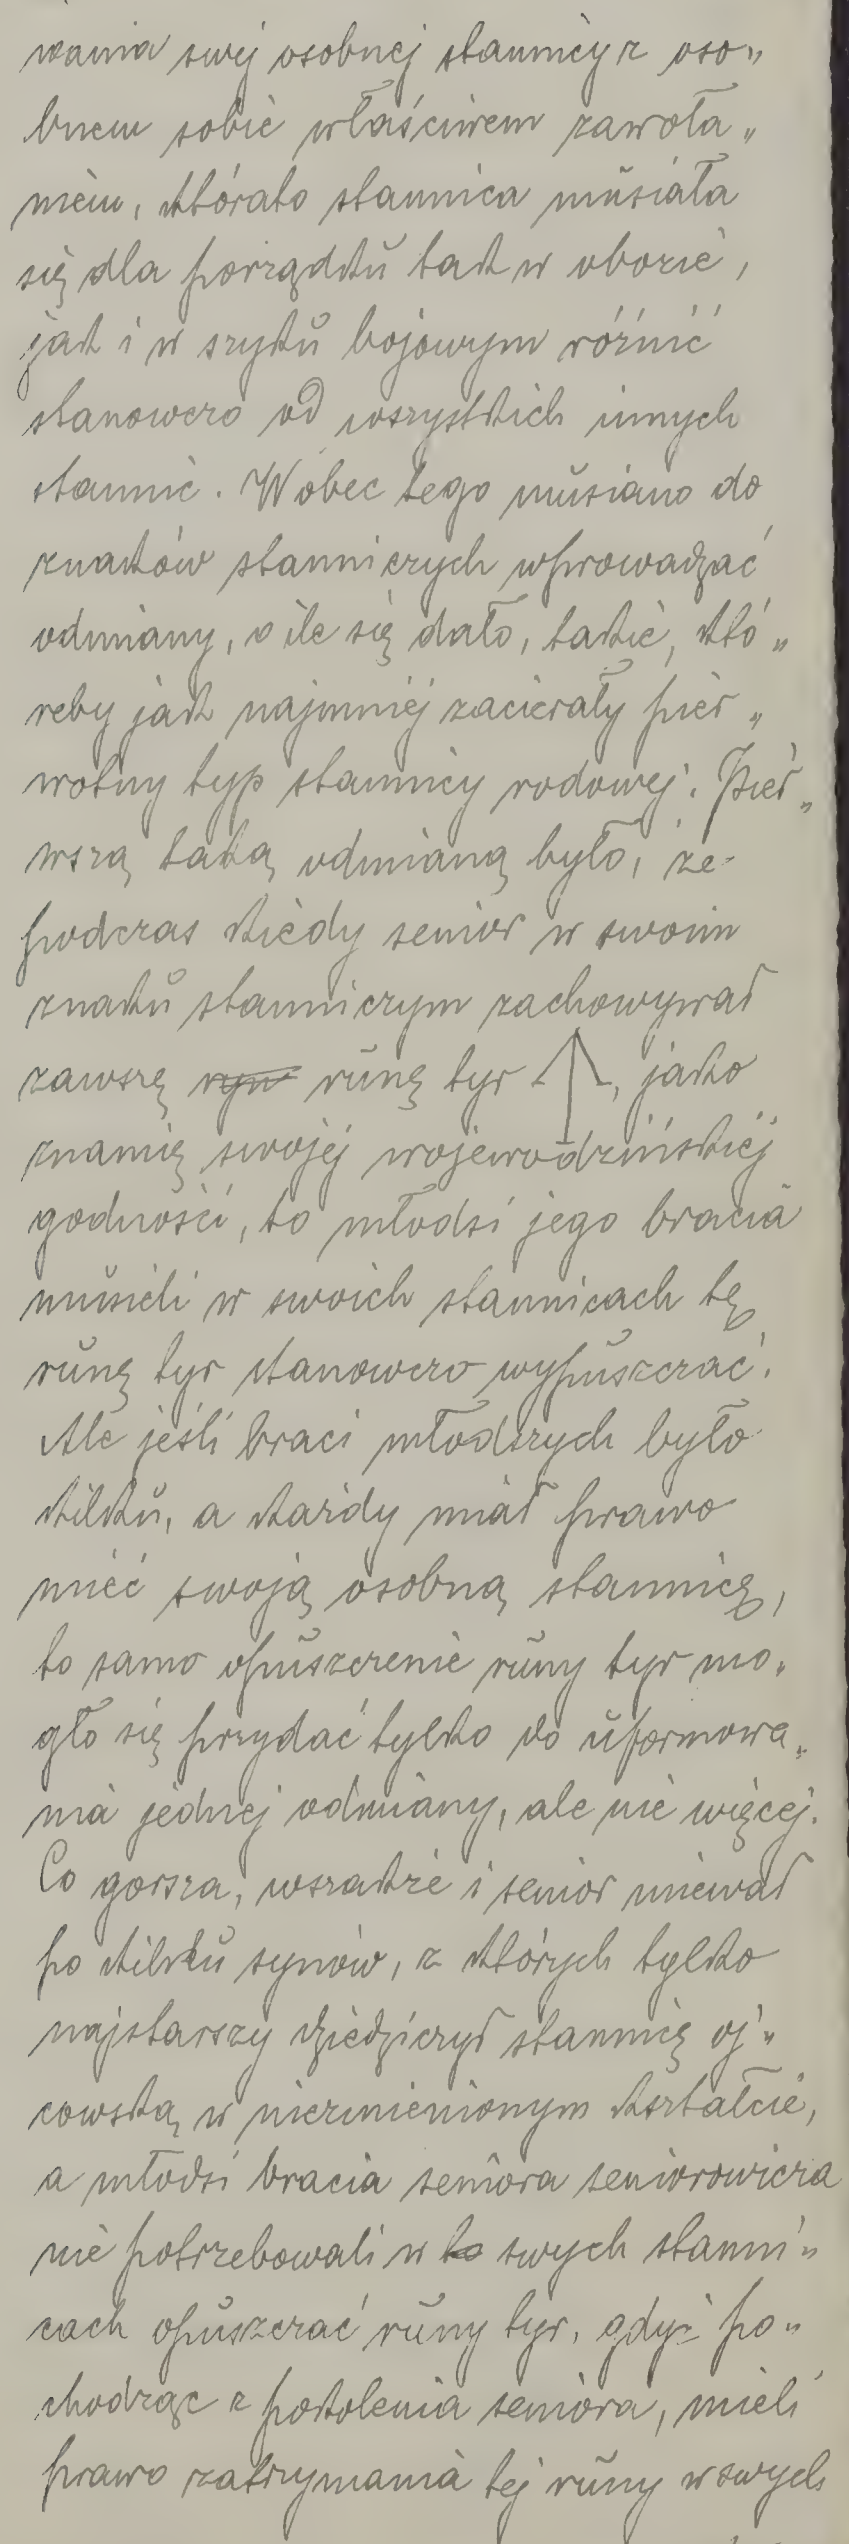 wania swej osobnej stannicy z oso„
bnem sobie właściwem zawoła„
niem, którato stannica musiała
się dla porządku tak w obozie,
jak i w szyku bojowym różnić
stanowczo od wszystkich innych
stannic. Wobec tego musiano do
znaków stanniczych wprowadzać
odmiany, o ile się dało, takie, któ„
reby jak najmniej zacierały pier„
wotny typ stannicy rodowej. Pier„
wszą taką odmianą było, że
podczas kiedy senior w swoim
znaku stanniczym zachowywał
zawszę ryn runę tyr ↑, jako
znamię swojej wojewodzińskiej
godności, to młodsi jego bracia
musieli w swoich stannicach tę
runę tyr stanowczo wypuszczać.
Ale jeśli braci młodszych było
kilku, a każdy miał prawo
mieć swoją osobną stannicę,
to samo opuszczenie runy tyr mo„
gło się przydać tylko do uformowa„
nia jednej odmiany, ale nie więcej.
Co gorsza, wszakże i senior miewał
po kilku synów, z których tylko
najstarszy dziedziczył stannicę oj„
cowską w niezmienionym kształcie,
a młodsi bracia seniora seniorowicza
nie potrzebowali w to swych stanni„
cach opuszczać runy tyr, gdyż po„
chodząc z pokolenia seniora, mieli
prawo zatrzymania tej runy w swych